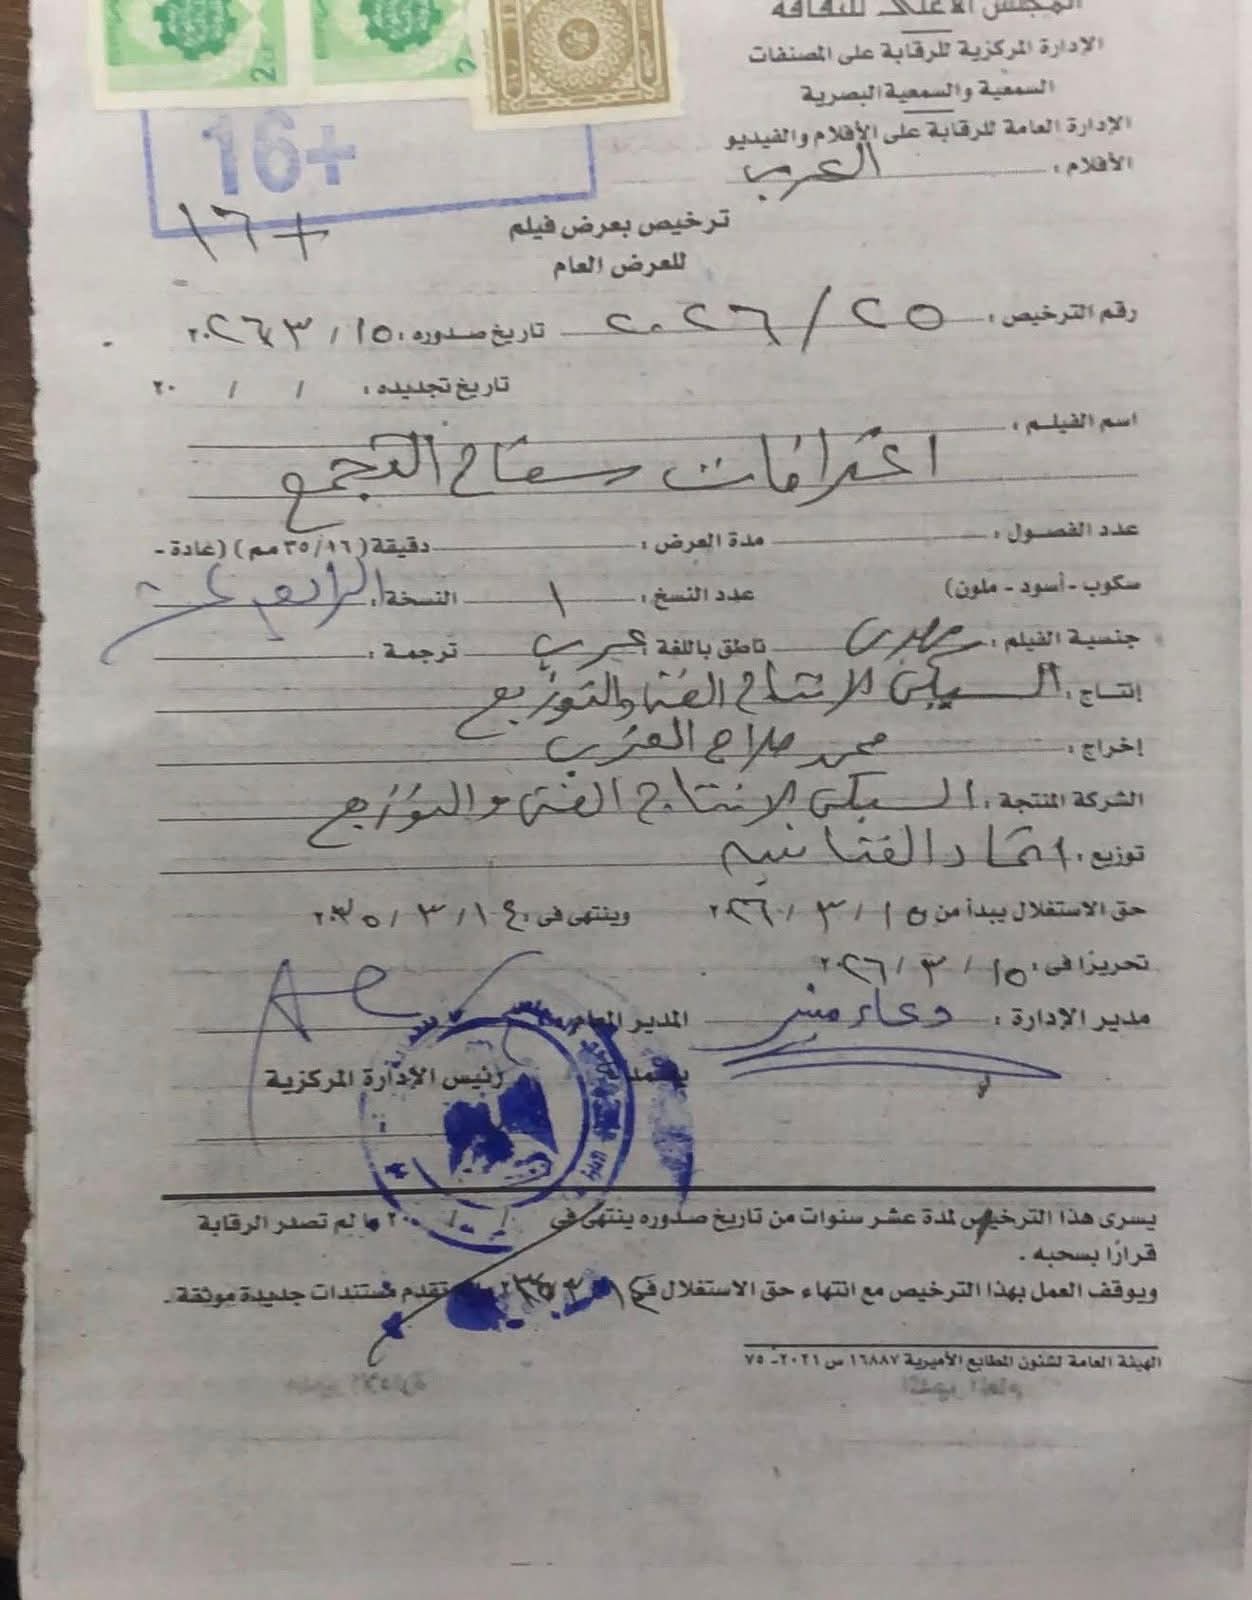 المجلس الأعلى للثقافة
الإدارة المركزية للرقابة على المصنفات
السمعية والسمعية البصرية
الإدارة العامة للرقابة على الأفلام والفيديو
الأفلام : العربى
16+
+١٦
ترخيص بعرض فيلم
للعرض العام
رقم الترخيص : ٢٥ / ٢٠٢٦ تاريخ صدوره : ١٥ / ٣ / ٢٠٢٦
تاريخ تجديده : / / ٢٠
اسم الفيلم :
اعترافات سفاح التجمع
عدد الفصول : مدة العرض : دقيقة (٣٥/١٦ مم) (عادة -
سكوب - أسود - ملون) عدد النسخ : ١ النسخة : الرابعة
جنسية الفيلم : مصرى ناطق باللغة : عربى ترجمة :
إنتاج : السبكى للانتاج الفنى والتوزيع
إخراج : محمد صلاح العزب
الشركة المنتجة : السبكى للانتاج الفنى والتوزيع
توزيع : اتحاد الفنانين
حق الاستغلال يبدأ من ١٥ / ٣ / ٢٠٢٦ وينتهى فى : ١٤ / ٣ / ٢٠٣٥
تحريرًا فى : ١٥ / ٣ / ٢٠٢٦
مدير الإدارة : دعاء منير المدير العام
يعتمد رئيس الإدارة المركزية
يسرى هذا الترخيص لمدة عشر سنوات من تاريخ صدوره ينتهى فى / / ٢٠ ما لم تصدر الرقابة
قرارًا بسحبه .
ويوقف العمل بهذا الترخيص مع انتهاء حق الاستغلال فى ١٤ / ٣ تقدم مستندات جديدة موثقة .
الهيئة العامة لشئون المطابع الأميرية ١٦٨٨٧ س ٢٠٢١ - ٧٥